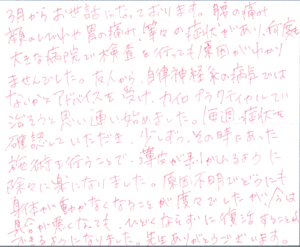 3月からお世話になっております。腰の痛み
顔のしびれや胃の痛み、様々の症状があり、何度も
大きな病院で検査を行っても原因がわかり
ませんでした。友人から、自律神経系の病気では
ないかとアドバイスを受け、カイロプラクティックにて
治そうと思い通い始めました。毎週、症状を
確認していただき、少しずつ、その時にあった
施術を行うことで、薄皮が剥がれるように
徐々に楽になりました。原因不明でどうにも
身体が動かなくなることが度々でしたが、今は
具合が悪くなっても、ひどくならずに復活することが
できるようになりました。先生ありがとうございます。